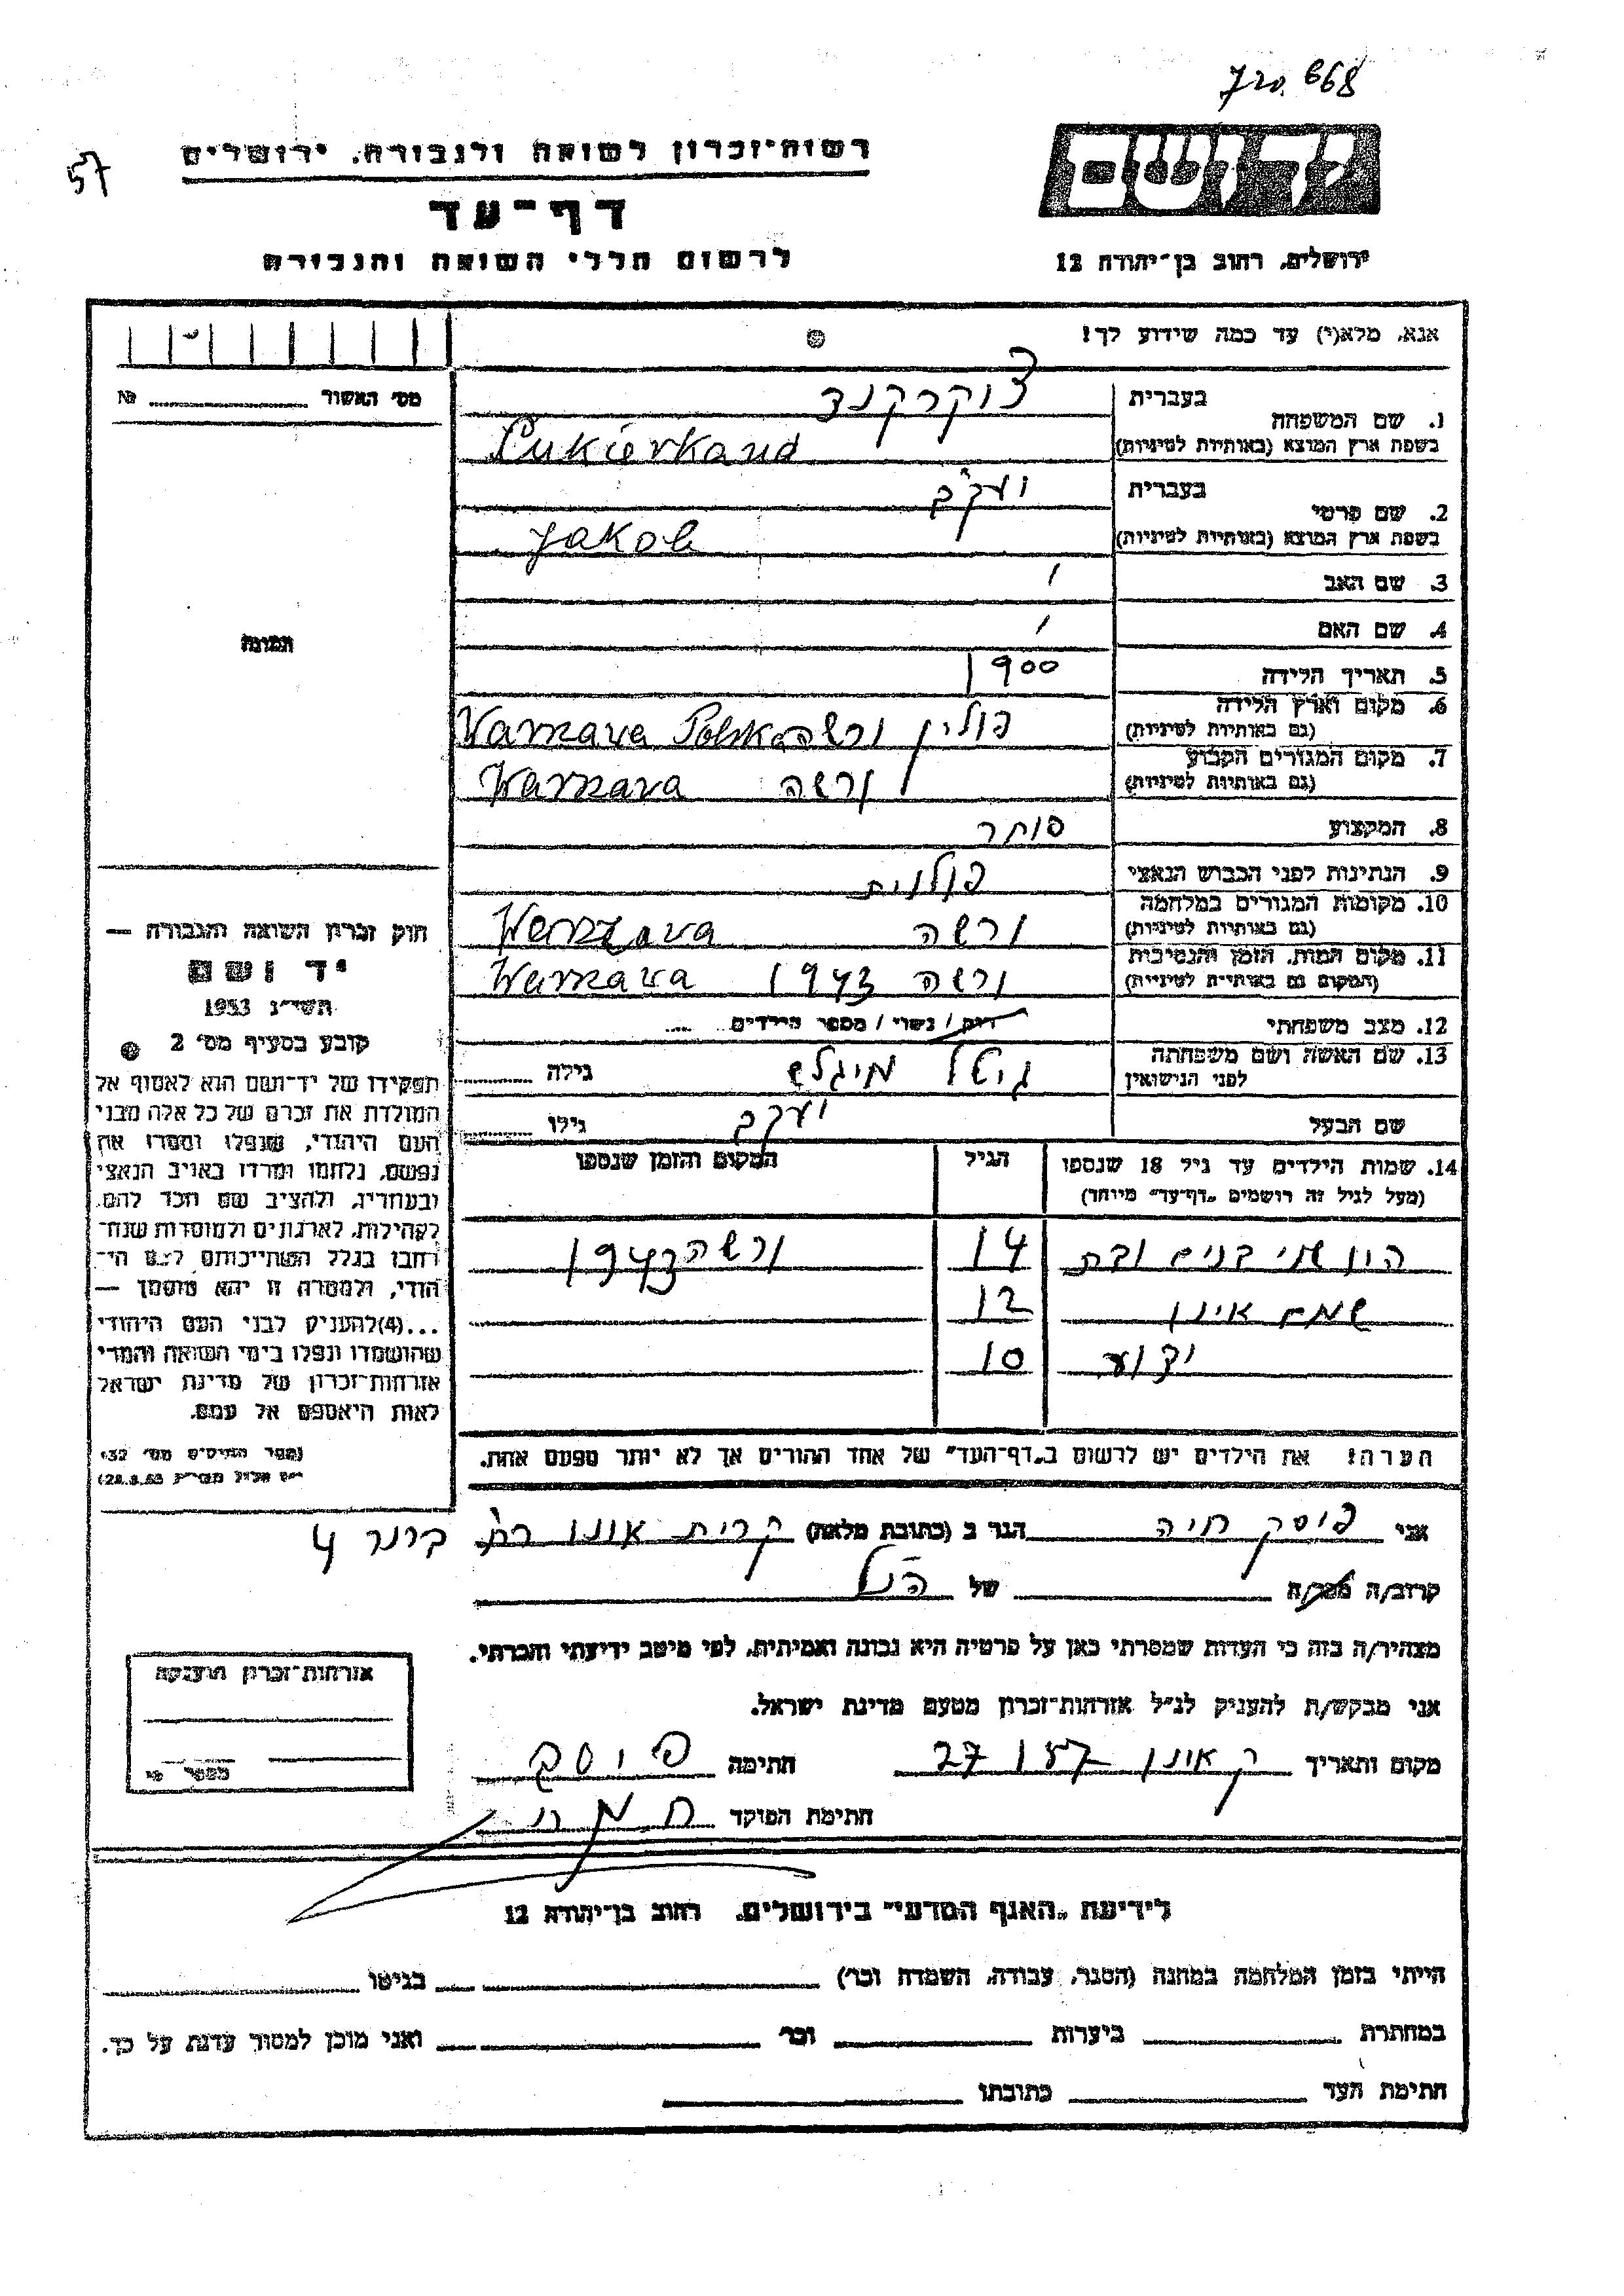 57
רשות־זכרון לשואה ולגבורה, ירושלים
דף־עד
לרשום חללי השואה והגבורה
ירושלים, רחוב בן־יהודה 12
אנא, מלא(י) עד כמה שידוע לך!
מס׳ האשור № 
1. שם המשפחה
בעברית צוקרקנד
בשפת ארץ המוצא (באותיות לטיניות) Cukierkand
2. שם פרטי
בעברית יעקב
בשפת ארץ המוצא (באותיות לטיניות) Jakob
3. שם האב /
4. שם האם /
5. תאריך הלידה 1900
6. מקום וארץ הלידה (גם באותיות לטיניות) פולין ורשה Warszawa Polska
7. מקום המגורים הקבוע (גם באותיות לטיניות) ורשה Warszawa
8. המקצוע סוחר
9. הנתינות לפני הכבוש הנאצי פולנית
10. מקומות המגורים במלחמה (גם באותיות לטיניות) ורשה Warszawa
11. מקום המות, הזמן והנסיבות (המקום גם באותיות לטיניות) ורשה 1943 Warszawa
12. מצב משפחתי רווק / נשוי / מספר הילדים
13. שם האשה ושם משפחתה לפני הנישואין גיטל גילה
שם הבעל יעקב גילו
14. שמות הילדים עד גיל 18 שנספו (מעל לגיל זה רושמים „דף־עד״ מיוחד)
הגיל
המקום והזמן שנספו
היו שני בנים ובת 14 ורשה 1943
שמם אינו 12
ידוע 10
הערה! את הילדים יש לרשום ב„דף־העד״ של אחד ההורים אך לא יותר מפעם אחת.
התמונה
חוק זכרון השואה והגבורה —
יד ושם
תשי״ג 1953
קובע בסעיף מס׳ 2
תפקידו של יד־ושם הוא לאסוף אל
המולדת את זכרם של כל אלה מבני
העם היהודי, שנפלו ומסרו את
נפשם, נלחמו ומרדו באויב הנאצי
ובעוזריו, ולהציב שם וזכר להם,
לקהילות, לארגונים ולמוסדות שנח־
רבו בגלל השתייכותם לעם הי־
הודי, ולמטרה זו יהא מוסמך —
...(4)להעניק לבני העם היהודי
שהושמדו ונפלו בימי השואה והמרי
אזרחות־זכרון של מדינת ישראל
לאות היאספם אל עמם.
(ספר החוקים מס׳ 132
אני פוסק חיה הגר ב (כתובת מלאה) קרית אונו רח׳ ברנר 4
קרוב/ה מכר/ה של הנ״ל
מצהיר/ה בזה כי העדות שמסרתי כאן על פרטיה היא נכונה ואמיתית, לפי מיטב ידיעתי והכרתי.
אני מבקש/ת להעניק לנ״ל אזרחות־זכרון מטעם מדינת ישראל.
מקום ותאריך ק אונו 27 חתימה
חתימת הפוקד
אזרחות־זכרון הוענקה
לידיעת „האגף המדעי״ בירושלים, רחוב בן־יהודה 12
הייתי בזמן המלחמה במחנה (הסגר, עבודה, השמדה וכו׳) בגיטו
במחתרת ביערות וכו׳ ואני מוכן למסור עדות על כך.
חתימת העד כתובתו